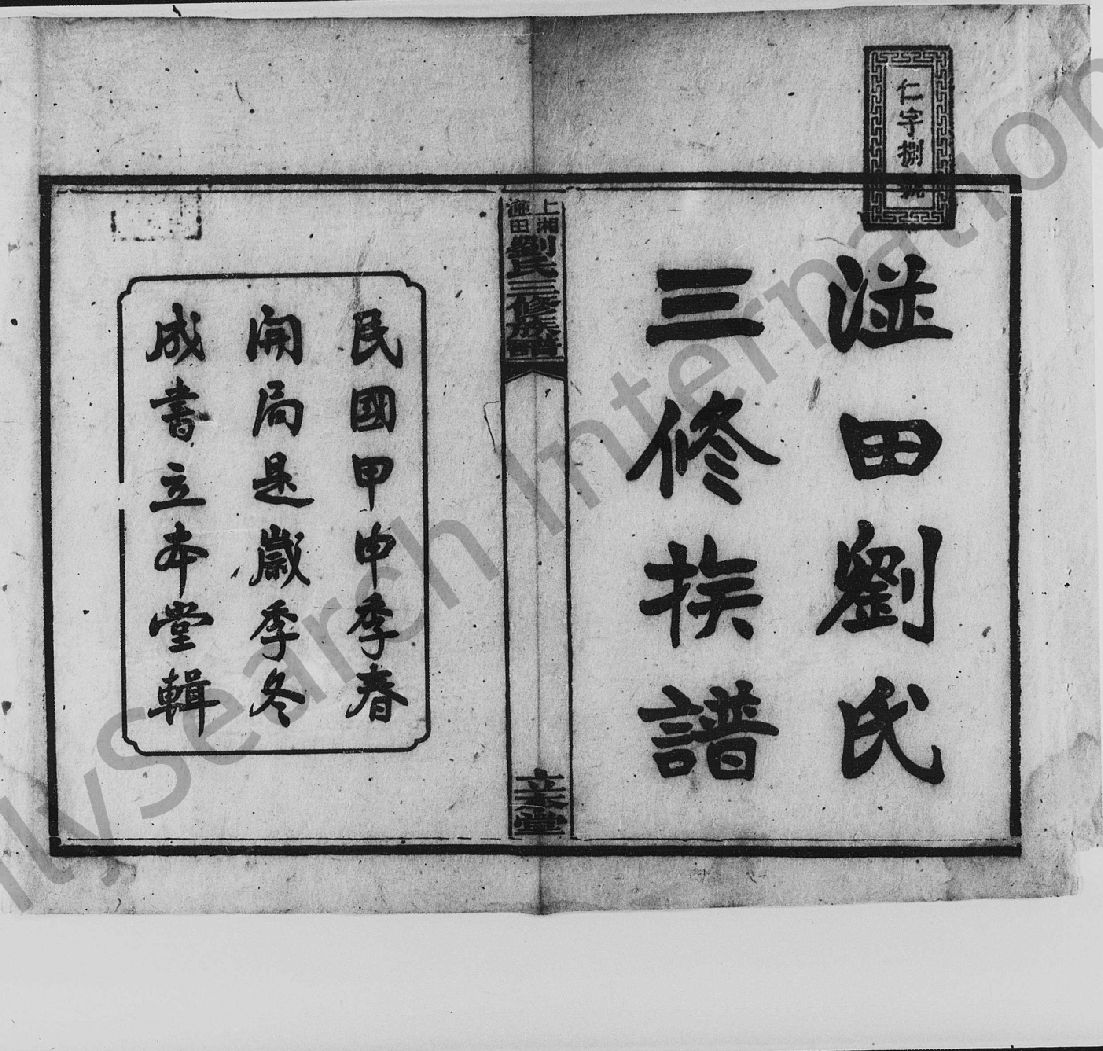 仁字捌號
湴田劉氏
三修族譜
上湘
湴田
劉氏三修族譜
立本堂
民國甲申季春
開局是歲季冬
成書立本堂輯
ilySearch Internation